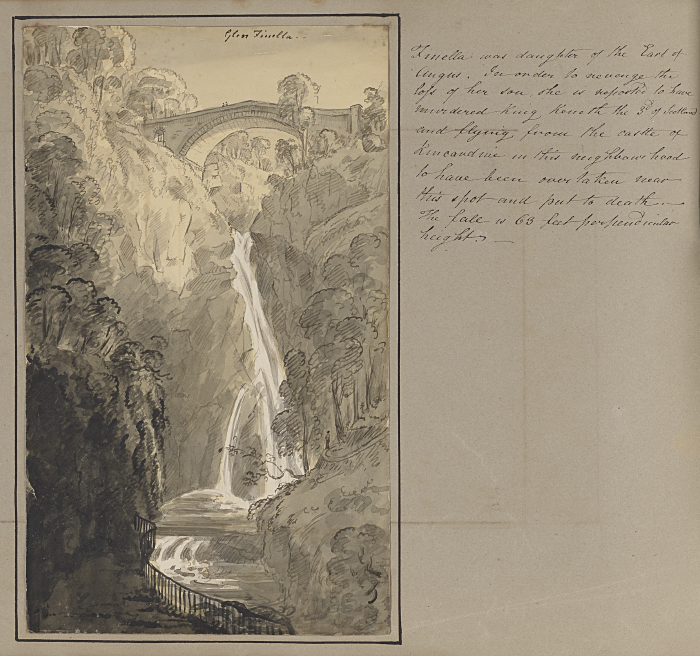 Glen Finella.
Finella was daughter of the Earl of
Angus. In order to revenge the
loss of her son she is reported to have
murdered King Keneth the 3d of Scotland
and flying from the castle of
Kincardine in this neighbourhood
to have been overtaken near
this spot and put to death.—
The fall is 63 feet perpendicular
height.—